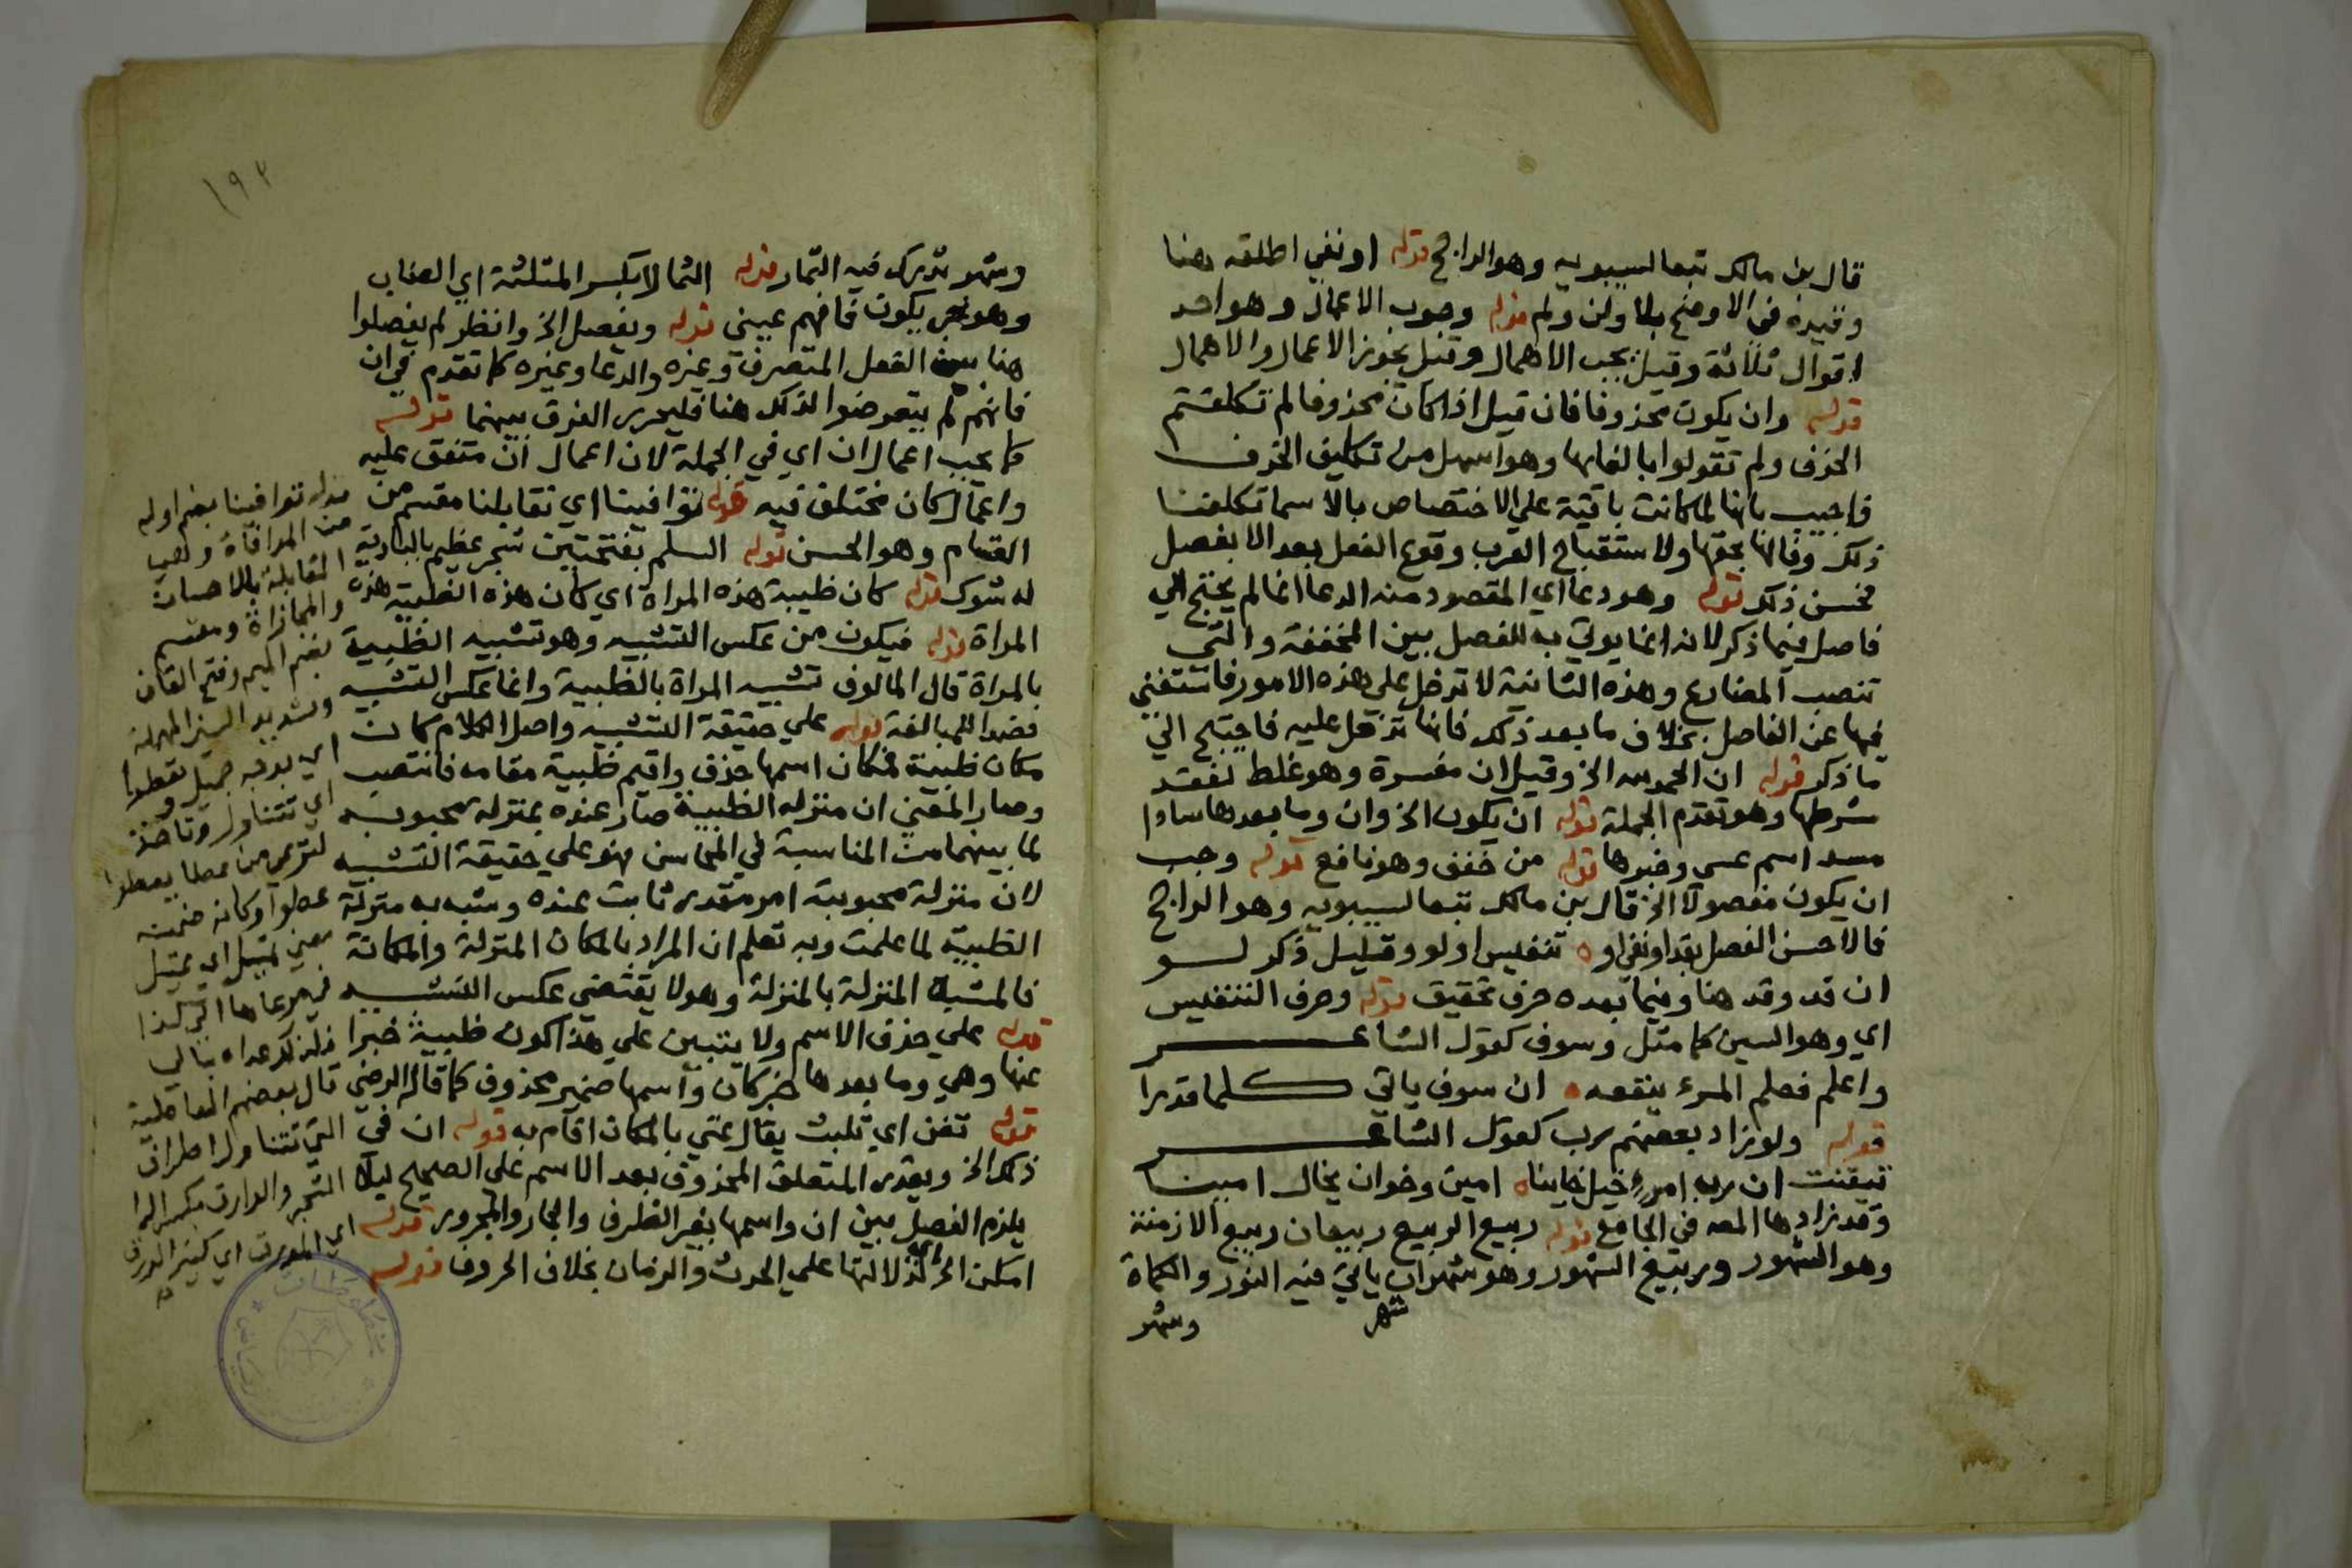 قال بن مالك تبعا لسيبويه وهو الراجح قوله او نفي اطلقه هنا
وقيده في الاوضح بلا ولن ولم قوله وجوب الاعمال وهو احد
اقوال ثلاثة وقيل يجب الاهمال وقيل يجوز الاعمال والاهمال
قوله وان يكون محذوفا فان قيل اذا كان محذوفا لم تكلفتم
الحذف ولم تقولوا بالغائها وهو اسهل من تكليف الحذف
فاجيب بانها لما كانت باقية علي الاختصاص بالاسما تكلفنا
ذلك وفا لها بحقها ولاستقباح العرب وقوع الفعل بعد الا بفصل
فحسن ذلك قوله وهو دعا اي المقصود منه الدعا انما لم يحتج الي
فاصل فيما ذكر لانه انما يوتي به للفصل بين المخففة والتي
تنصب المضارع وهذه الثانية لا تدخل علي هذه الامور فاستغني
فيها عن الفاصل بخلاف ما بعد ذلك فانها تدخل عليه فاحتيج الي
ما ذكر قوله ان الحمد لله الخ وقيل ان مفسرة وهو غلط لفقد
شرطها وهو تقدم الجملة قوله ان يكون الخ وان وما بعدها سادا
مسد اسم عسي وخبرها قوله من خفف وهو نافع قوله وجب
ان يكون مفصولا الخ قال بن مالك تبعا لسيبويه وهو الراجح
فالاحسن الفصل بقد او نفي او ه تنفيس او لو وقليل ذكر لو
ان قد وقد هنا وفيما بعده حرف تحقيق قوله وحرف التنفيس
اي وهو السين كما مثل وسوف كقول الشاعر
واعلم فعلم المرء ينفعه ه ان سوف ياتي كلما قدرا
قوله ولو زاد بعضهم رب كقول الشاعر
تيقنت ان رب امرء خيل خاينا ه امين وخوان يخال امينا
وقد زادها المص في الجامع قوله ربيع الربيع ربيعان ربيع الازمنة
وهو الشهور وربيع الشهور وهو شهران ياتي فيه النور والكماة
شهر
وشهر
١٩٢
وشهر تدرك فيه الثمار قوله الثمالا بكسر المثلثة اي الغياب
وهو خبر يكون فافهم عيني قوله ويفصل الخ وانظر لم يفصلوا
هنا بين الفعل المتصرف وغيره والدعا وغيره كما تقدم في ان
فانهم لم يتعرضوا لذلك هنا فليحرر الفرق بينهما قوله
كما يجب اعمال ان اي في الجملة لان اعمال ان متفق عليه
واعمال كان مختلف فيه قوله توافينا اي تقابلنا مقسم من
القسام وهو الحسن قوله السلم بفتحتين شجر عظيم بالبادية
له شوك قوله كان ظبية هذه المراة اي كان هذه الظبية هذه
المراة قوله فيكون من عكس التشبيه وهو تشبيه الظبية
بالمراة قال المالوف تشبيه المراة بالظبية وانما عكس التشبيه
قصدا للمبالغة قوله علي حقيقة التشبيه واصل الكلام كان
مكان ظبية فمكان اسمها حذف واقيم ظبية مقامه فانتصب
وصار المعني ان منزلة الظبية صار عنده بمنزلة محبوبته
لما بينهما من المناسبة في المحاسن فهو علي حقيقة التشبيه
لان منزلة محبوبته امر مقدر ثابت عنده وشبه به منزلة
الظبية لما علمت وبه تعلم ان المراد بالمكان المنزلة والمكانة
فالمشبه المنزلة بالمنزلة وهو لا يقتضي عكس التشبيه
قوله علي حذف الاسم ولا يتبين علي هذا كون ظبية خبرا
عنها وهي وما بعدها خبر كان واسمها ضمير محذوف كما قاله الرضي
قوله تغن اي تلبث يقال غني بالمكان اقام به قوله ان في
ذلك الخ ويقدر المتعلق المحذوف بعد الاسم علي الصحيح ليلا
يلزم الفصل بين ان واسمها بغير الظرف والجار والمجرور قوله
امكن الخ اي لدلالتها علي الحدث والزمان بخلاف الحروف قوله
قوله توافينا بضم اوله
من الموافاة وهي
المقابلة بالاحسان
والمجازاة ومقسم
بضم الميم وفتح القاف
وتشديد السين المهملة
اي بوجه جميل تعطوا
اي تتناول وتاخذ
عطوا وكانه ضمنه
معني تميل اي تميل
قال بعضهم
التي تتناول اطراف
الشجر والوارق بكسر الرا
اي المورق اي كثير الورق